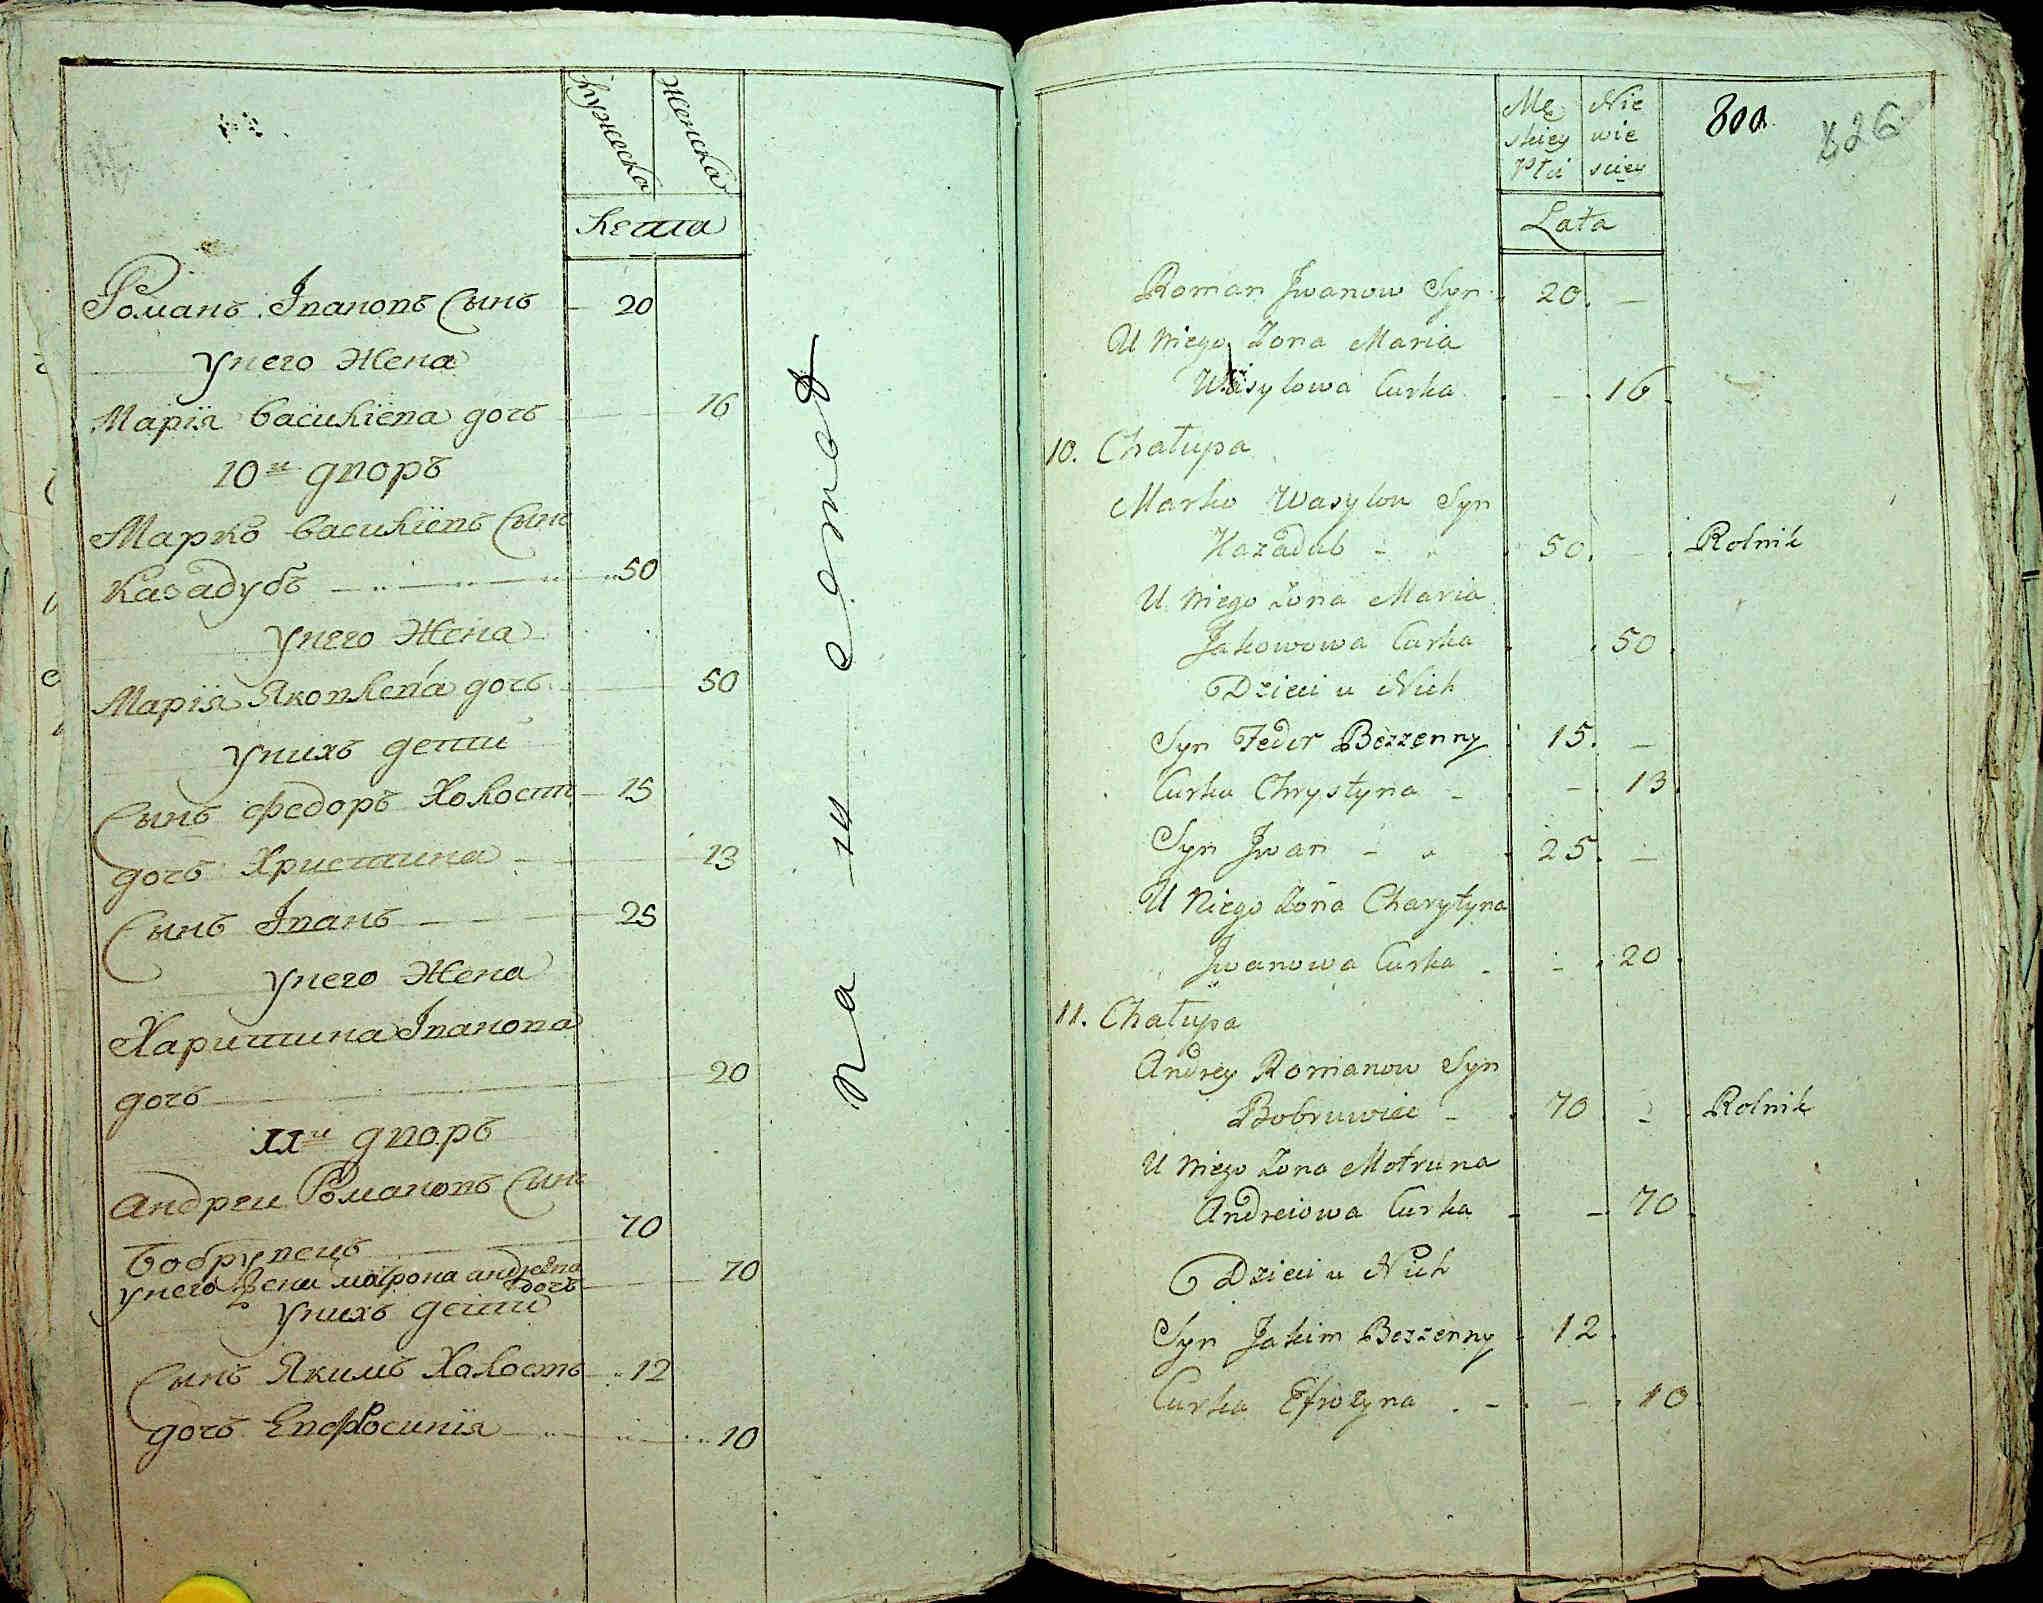 Мужеска
Женска
Лета
Романъ Івановъ Сынъ 20
Унего Жена
Марїя Василїева дочъ 16
10й дворъ
Марко Василїевъ Сынъ
Казадубъ 50
Унего Жена
Марїя Яковлева дочъ 50
Унихъ дети
Сынъ Федоръ Холостъ 15
дочъ Христина 13
Сынъ Іванъ 25
Унего Жена
Харитина Іванова
дочъ 20
11й дворъ
Андреи Романовъ Сынъ
Бобрувецъ 70
Унего Жена матрона андреева дочъ 70
Унихъ дети
Сынъ Якимъ Холостъ 12
дочъ Евфросинїя 10
Mę Nie
skiey wie
Płci sciey
Lata
800
826
Roman Jwanow Syn 20. –
U Niego Żona Maria
Wasylowa Curka – 16
10. Chałupa
Marko Wasylow Syn
Kazadub 50. – Rolnik
U Niego Żona Maria
Jakowowa Curka 50
Dzieci u Nich
Syn Fedor Bezżenny 15. –
Curka Chrystyna – 13
Syn Jwan 25. –
U Niego Żona Charytyna
Jwanowa Curka – 20
11. Chałupa
Andrey Romanow Syn
Bobruwiec 70 – Rolnik
U Niego Żona Motruna
Andreiowa Curka – 70
Dzieci u Nich
Syn Jakim Bezżenny 12
Curka Efrozyna – 10